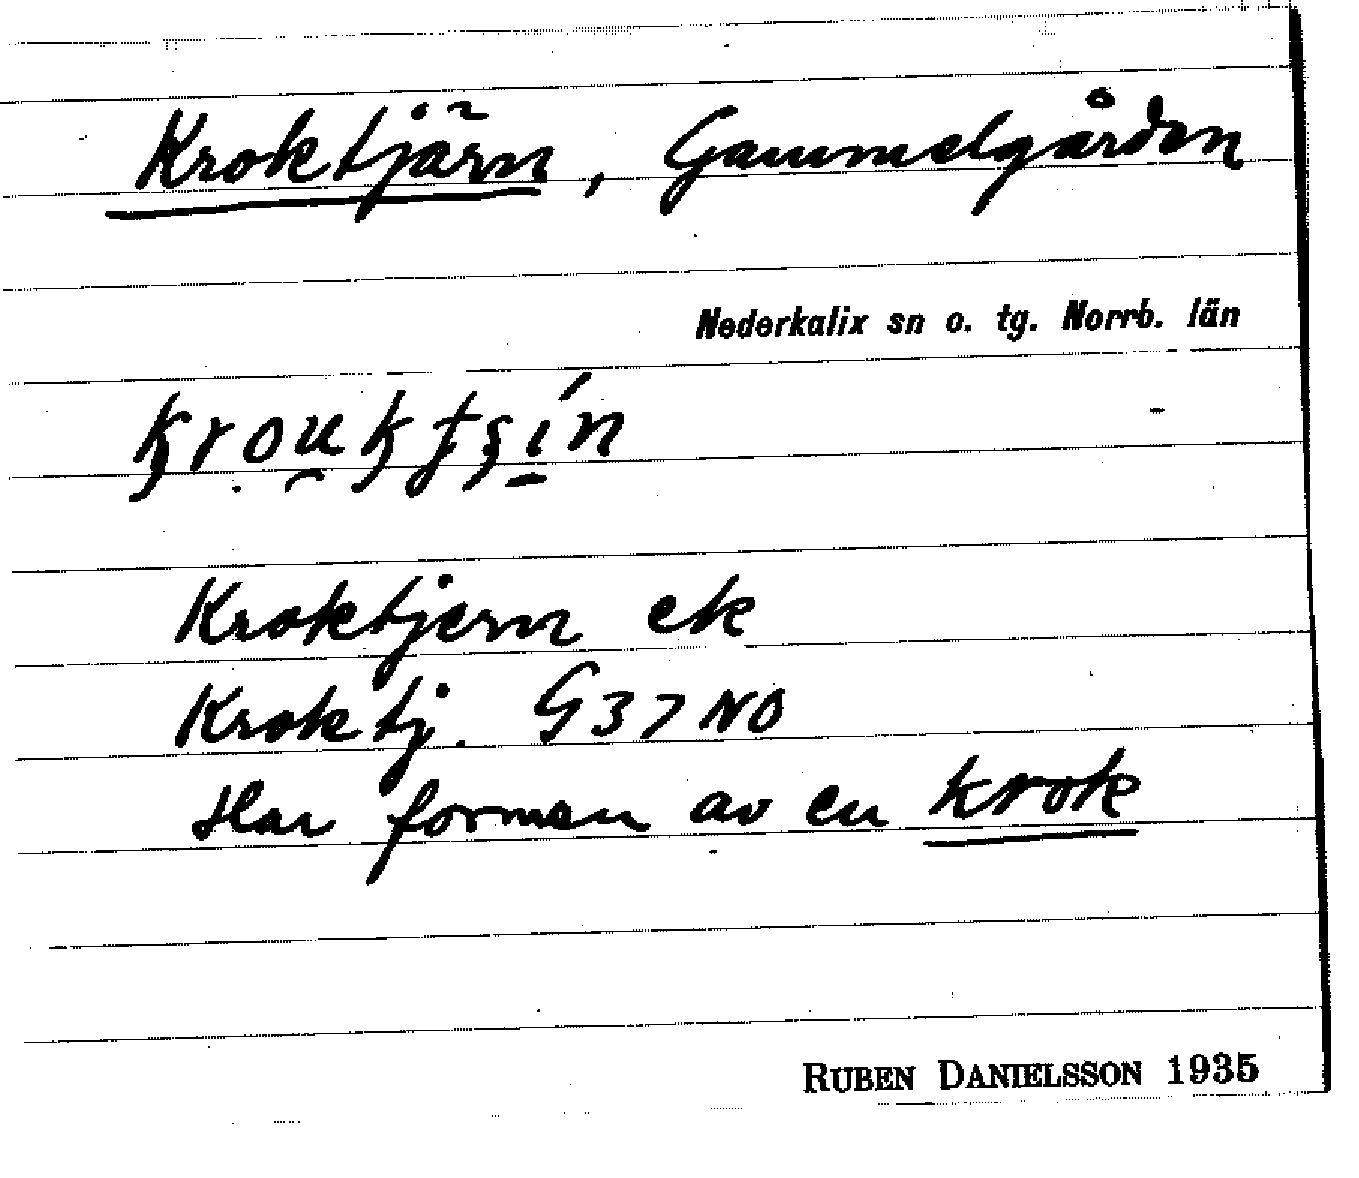 Kroktjärn, Gammelgården
Nederkalix sn o. tg. Norrb. län
krouktsin
Kroktjern ek
Kroktj. G37NO
Har formen av en krok
RUBEN DANIELSSON 1935